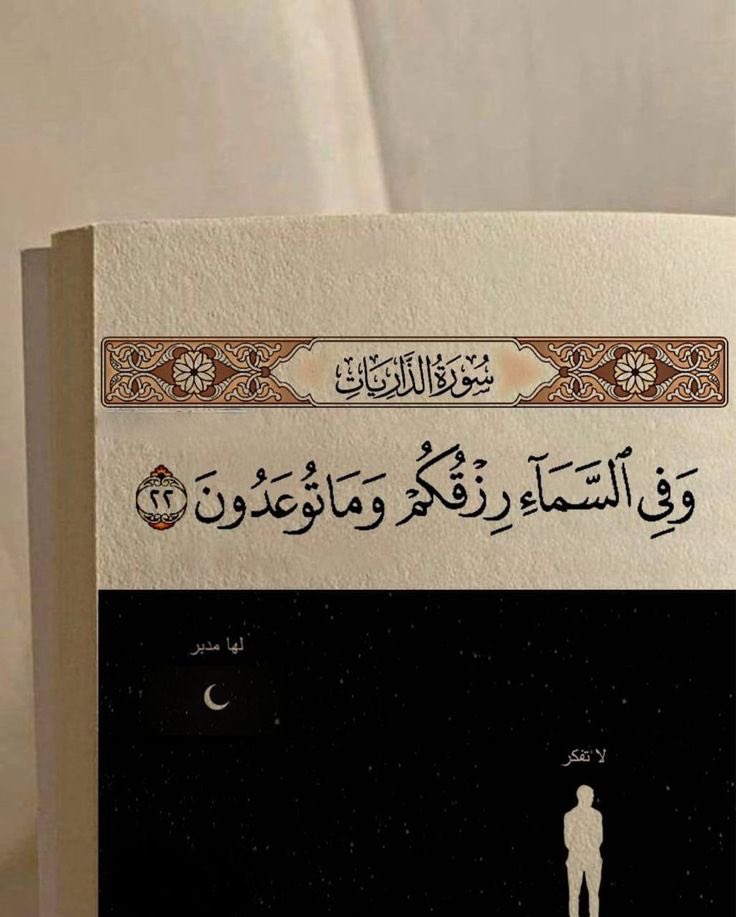 سُورَةُ الذَّارِيَاتِ
وَفِي ٱلسَّمَآءِ رِزۡقُكُمۡ وَمَا تُوعَدُونَ ٢٢
لها مدبر
لا تفكر